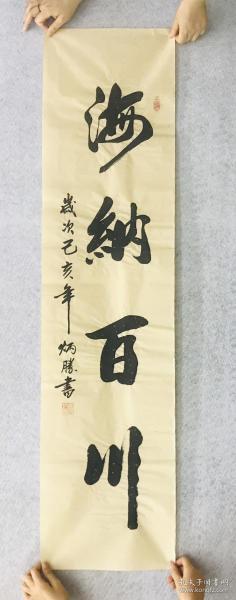 海納百川
歲次己亥年 炳勝書
孔夫子旧书网
www.kongfz.com